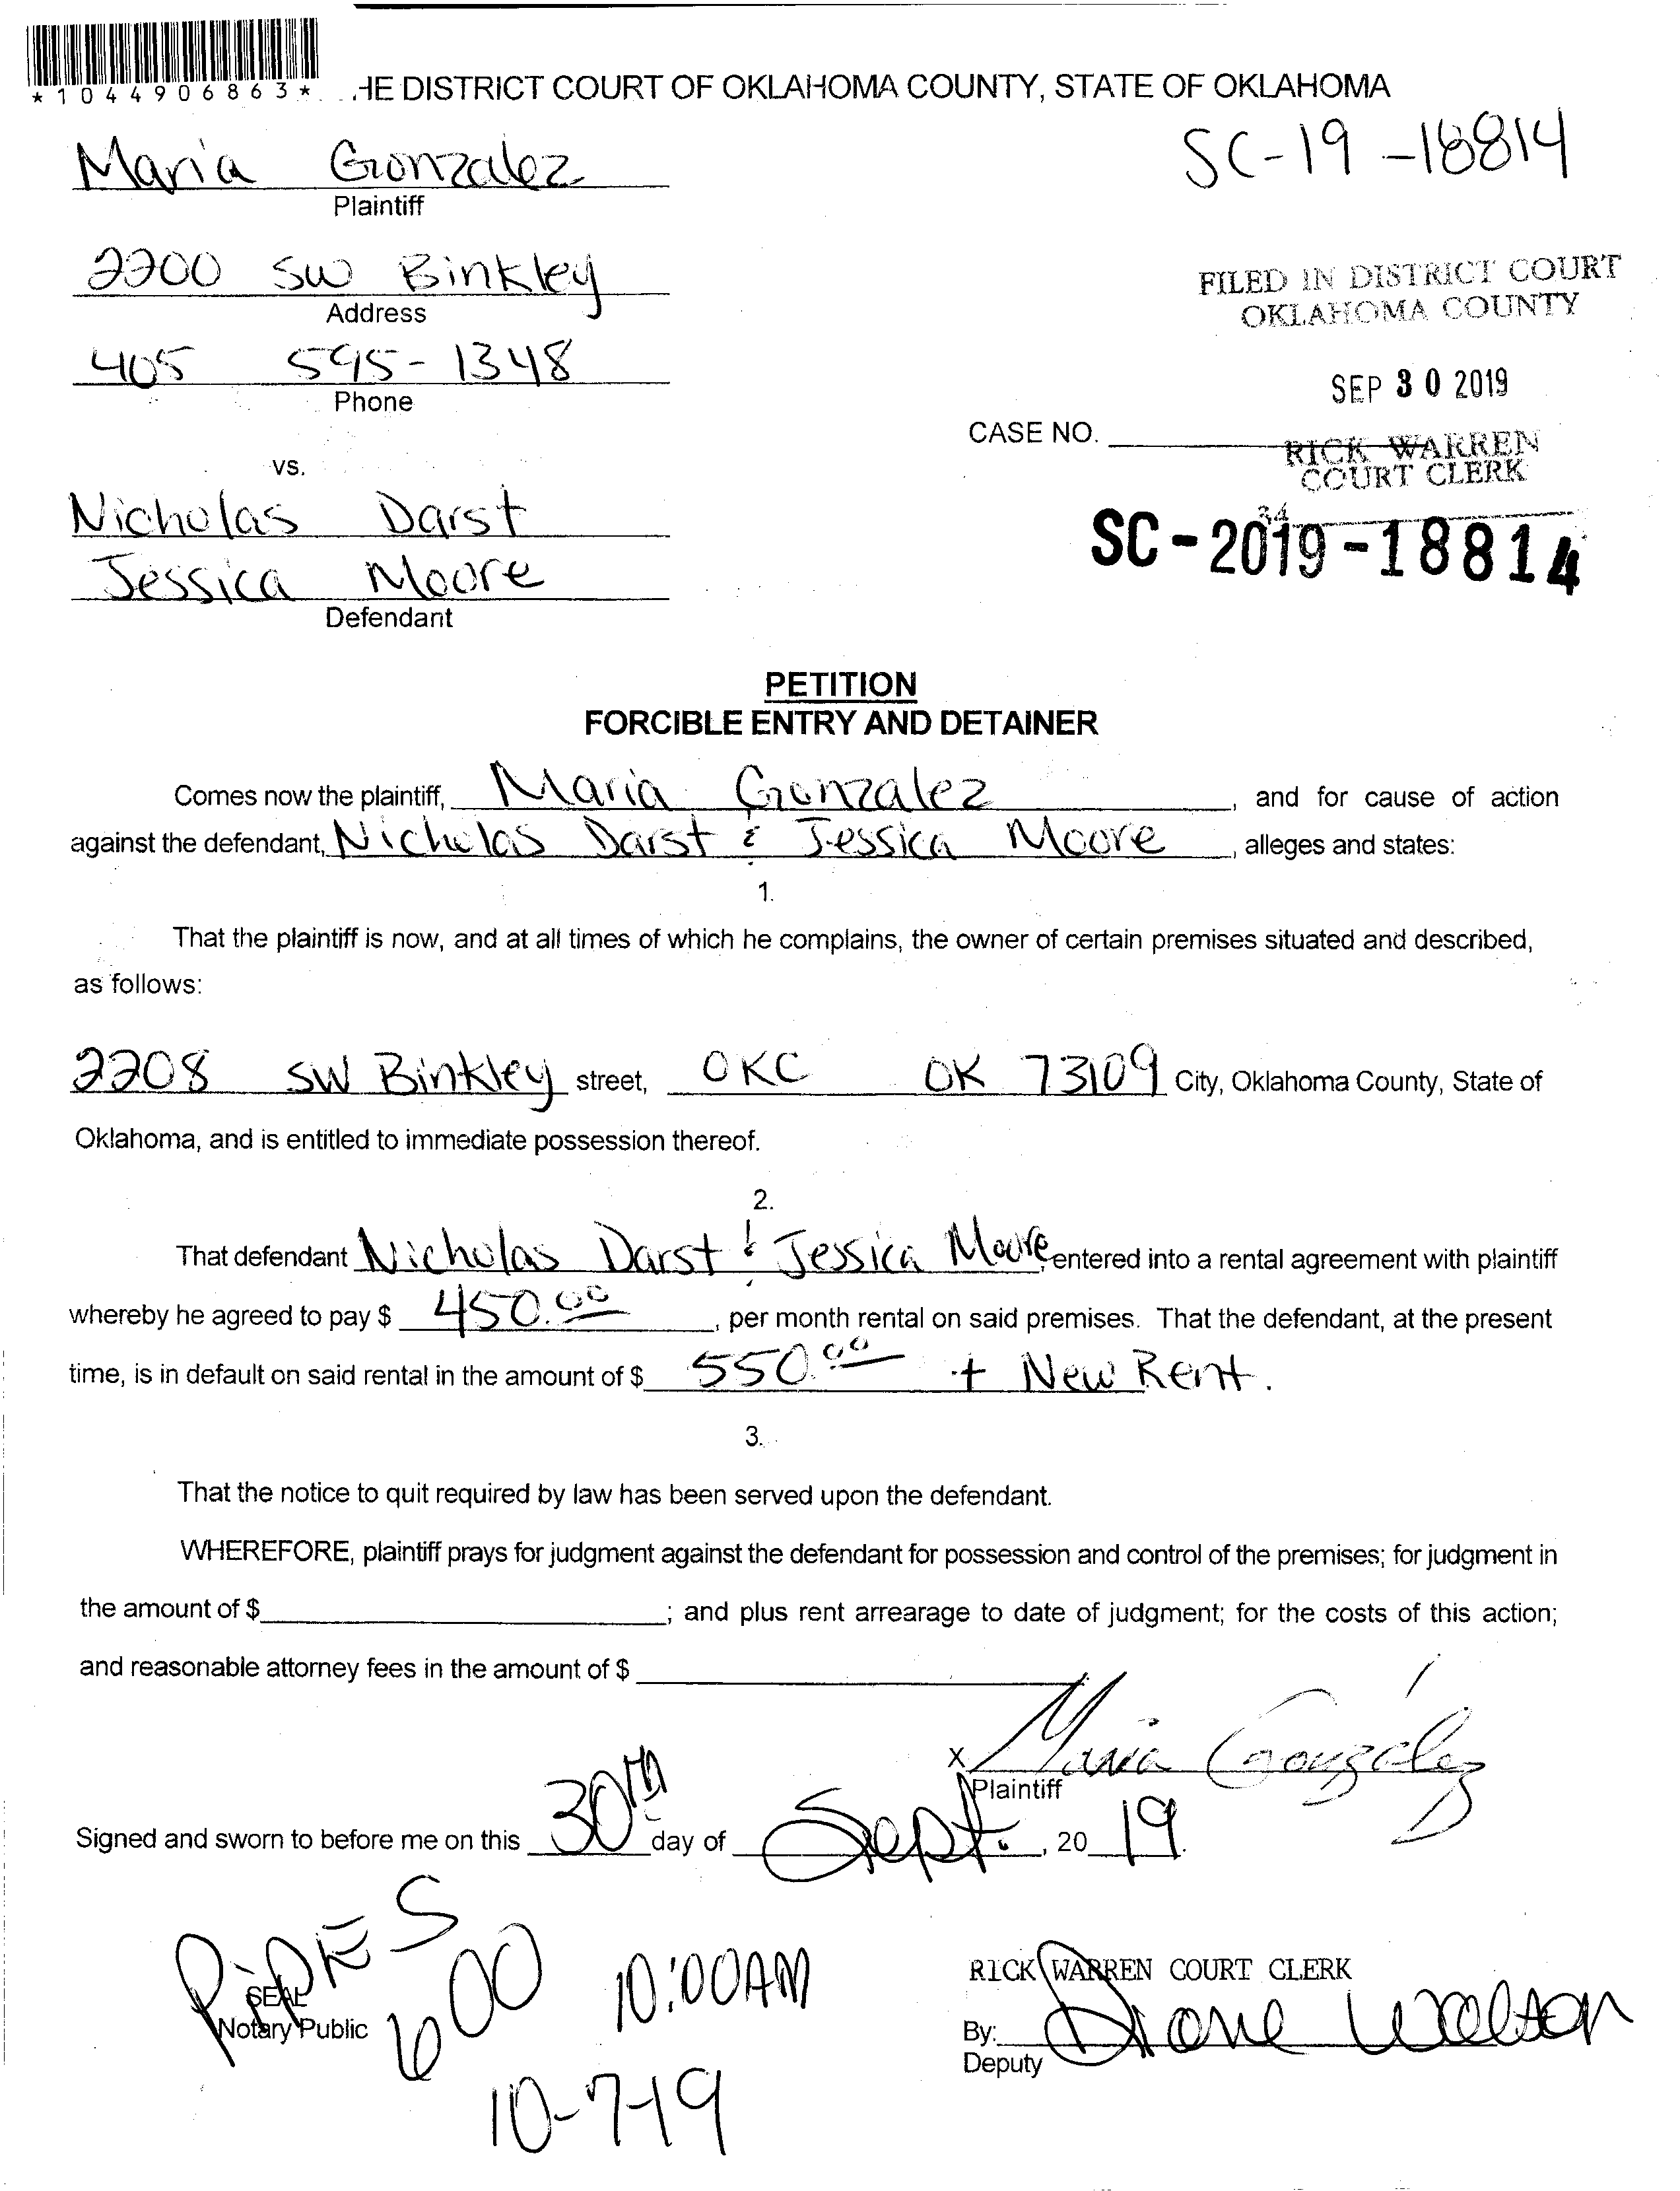 *1044906863*
HE DISTRICT COURT OF OKLAHOMA COUNTY, STATE OF OKLAHOMA
SC-19-18814
Maria Gonzalez
Plaintiff
2200 SW Binkley
Address
FILED IN DISTRICT COURT
OKLAHOMA COUNTY
405 595-1348
Phone
SEP 30 2019
CASE NO.
RICK WARREN
COURT CLERK
vs.
34
SC-2019-18814
Nicholas Darst
Jessica Moore
Defendant
PETITION
FORCIBLE ENTRY AND DETAINER
Comes now the plaintiff, Maria Gonzalez, and for cause of action
against the defendant, Nicholas Darst & Jessica Moore, alleges and states:
1.
That the plaintiff is now, and at all times of which he complains, the owner of certain premises situated and described,
as follows:
2208 SW Binkley street, OKC OK 73109 City, Oklahoma County, State of
Oklahoma, and is entitled to immediate possession thereof.
2.
That defendant Nicholas Darst & Jessica Moore, entered into a rental agreement with plaintiff
whereby he agreed to pay $ 450.00, per month rental on said premises. That the defendant, at the present
time, is in default on said rental in the amount of $ 550.00 + New Rent.
3.
That the notice to quit required by law has been served upon the defendant.
WHEREFORE, plaintiff prays for judgment against the defendant for possession and control of the premises; for judgment in
the amount of $; and plus rent arrearage to date of judgment; for the costs of this action;
and reasonable attorney fees in the amount of $
X Maria González
Plaintiff
Signed and sworn to before me on this 30th day of Sept., 2019.
PIPES
600 10:00AM
SEAL
Notary Public
10-7-19
RICK WARREN COURT CLERK
By: Diane Walton
Deputy